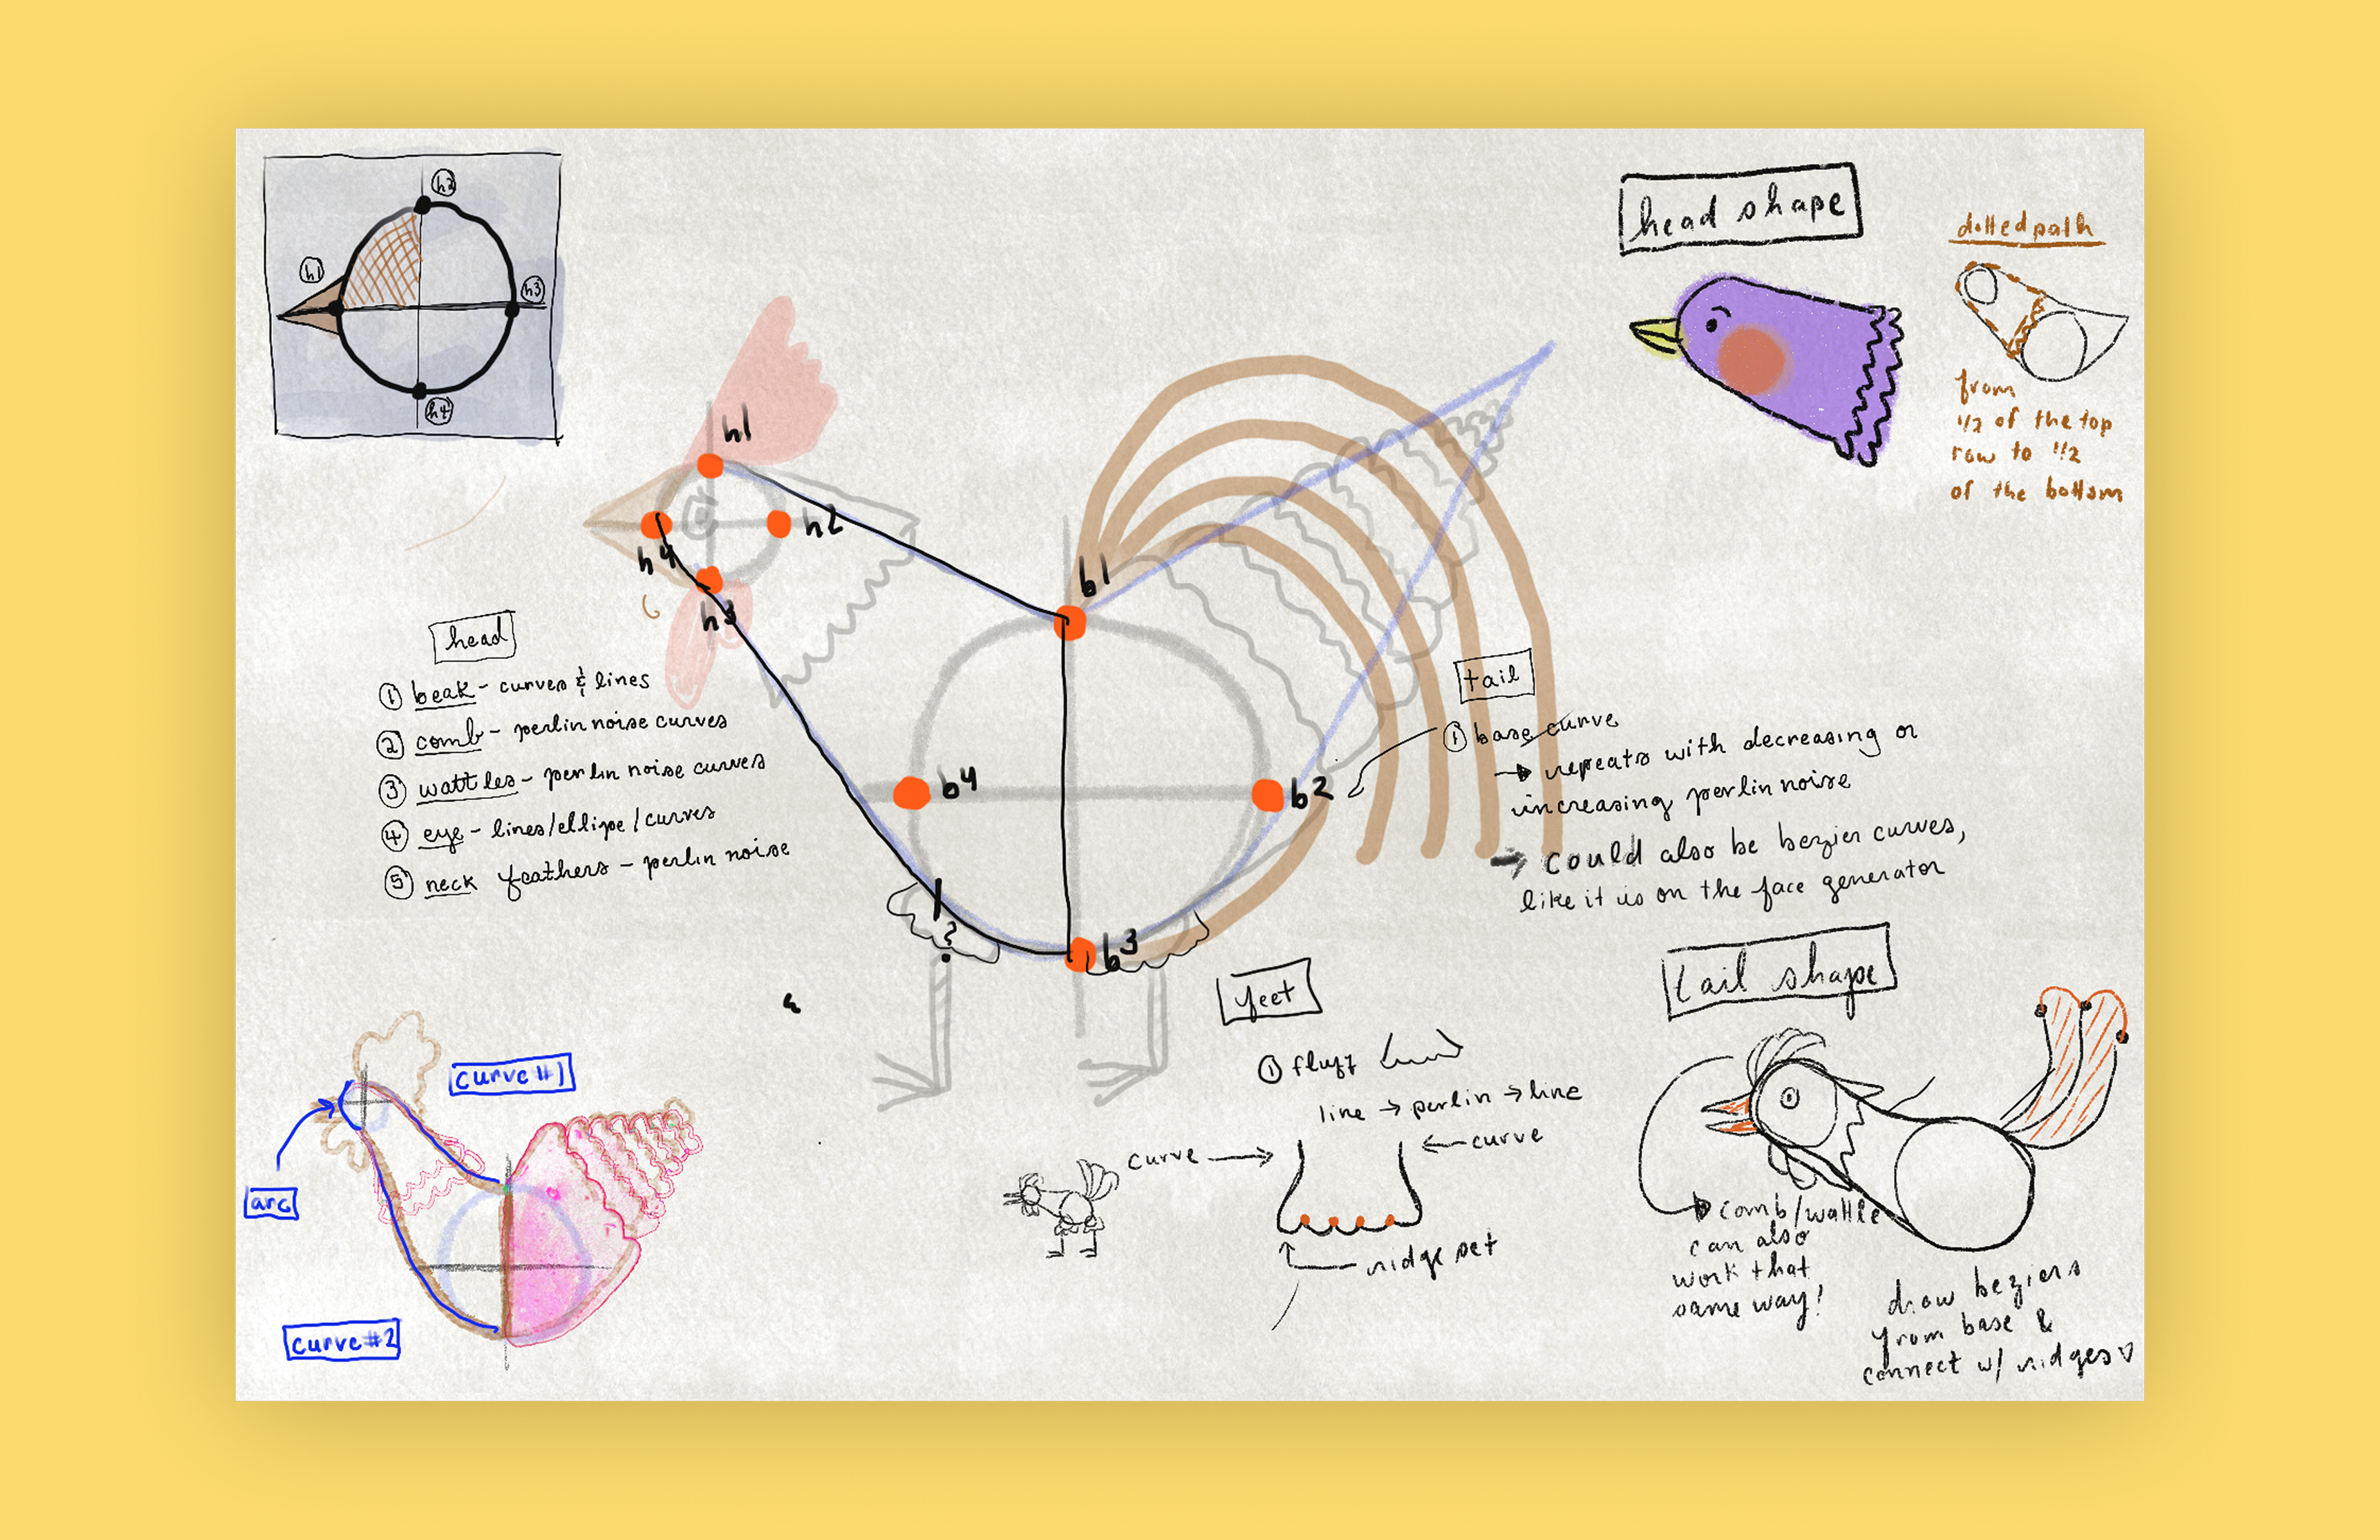 h2
h1
h3
h4
head shape
dotted path
from
1/2 of the top
row to 1/2
of the bottom
h1
h2
h4
h3
b1
b4
b2
b3
?
head
① beak - curves & lines
② comb - perlin noise curves
③ wattles - perlin noise curves
④ eye - lines/ellipe/curves
⑤ neck feathers - perlin noise
tail
① base curve
→ repeats with decreasing or
increasing perlin noise
→ could also be bezier curves,
like it is on the face generator
feet
① fluff
line → perlin → line
curve →
← curve
ridge set
tail shape
comb/wattle
can also
work that
same way!
draw beziers
from base &
connect w/ ridges ♡
curve #1
arc
curve #2